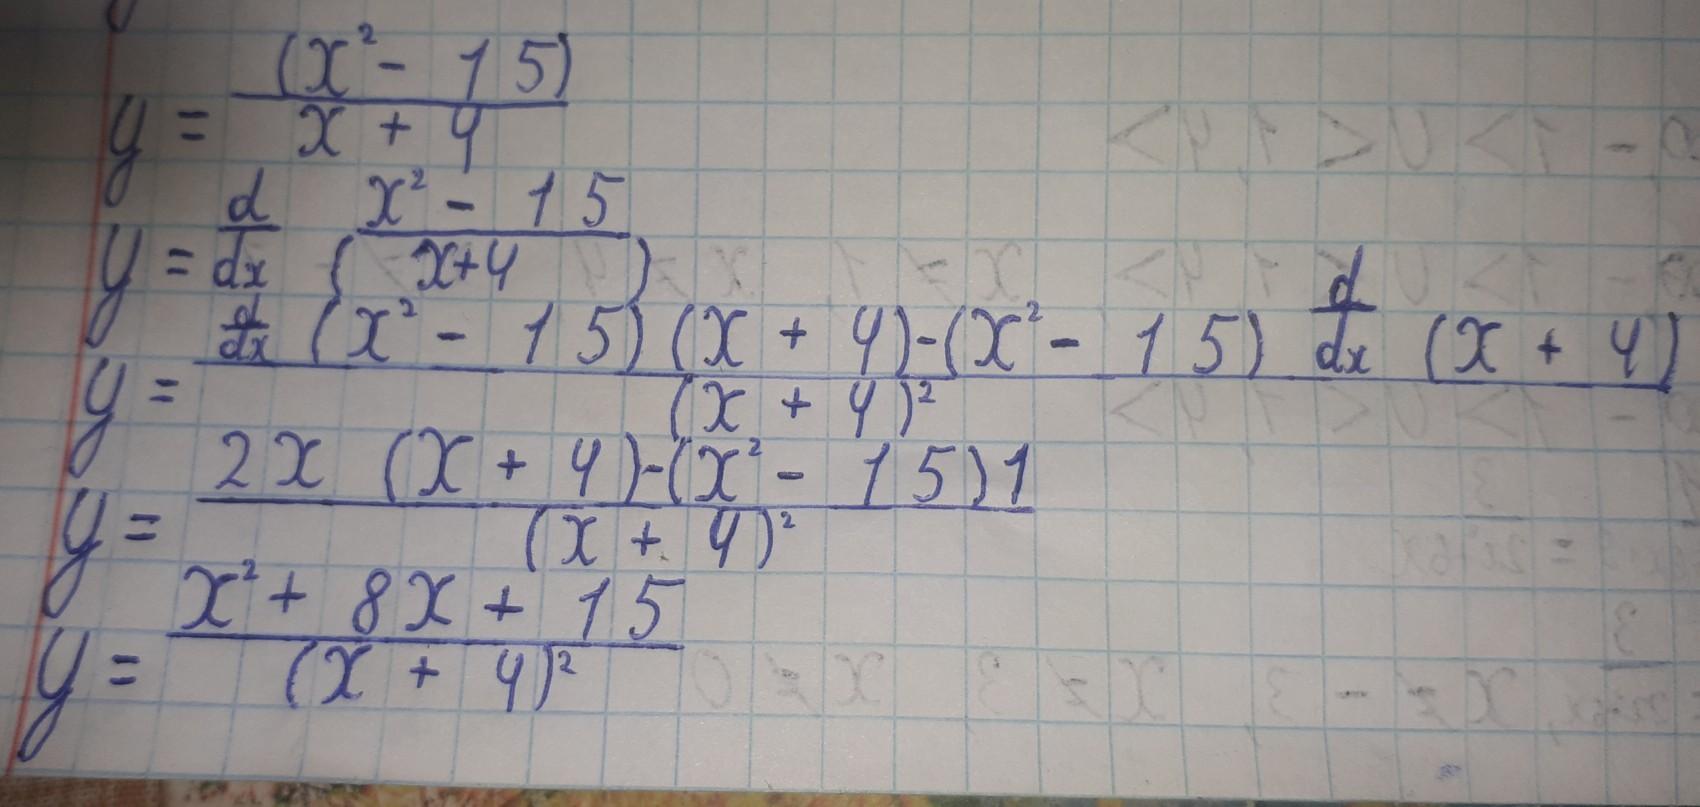 y = (x² - 15) / x + 4
y = d/dx (x² - 15 / x+4)
y = d/dx (x² - 15)(x + 4)-(x² - 15) d/dx (x + 4) / (x + 4)²
y = 2x (x + 4)-(x² - 15)1 / (x + 4)²
y = x² + 8x + 15 / (x + 4)²